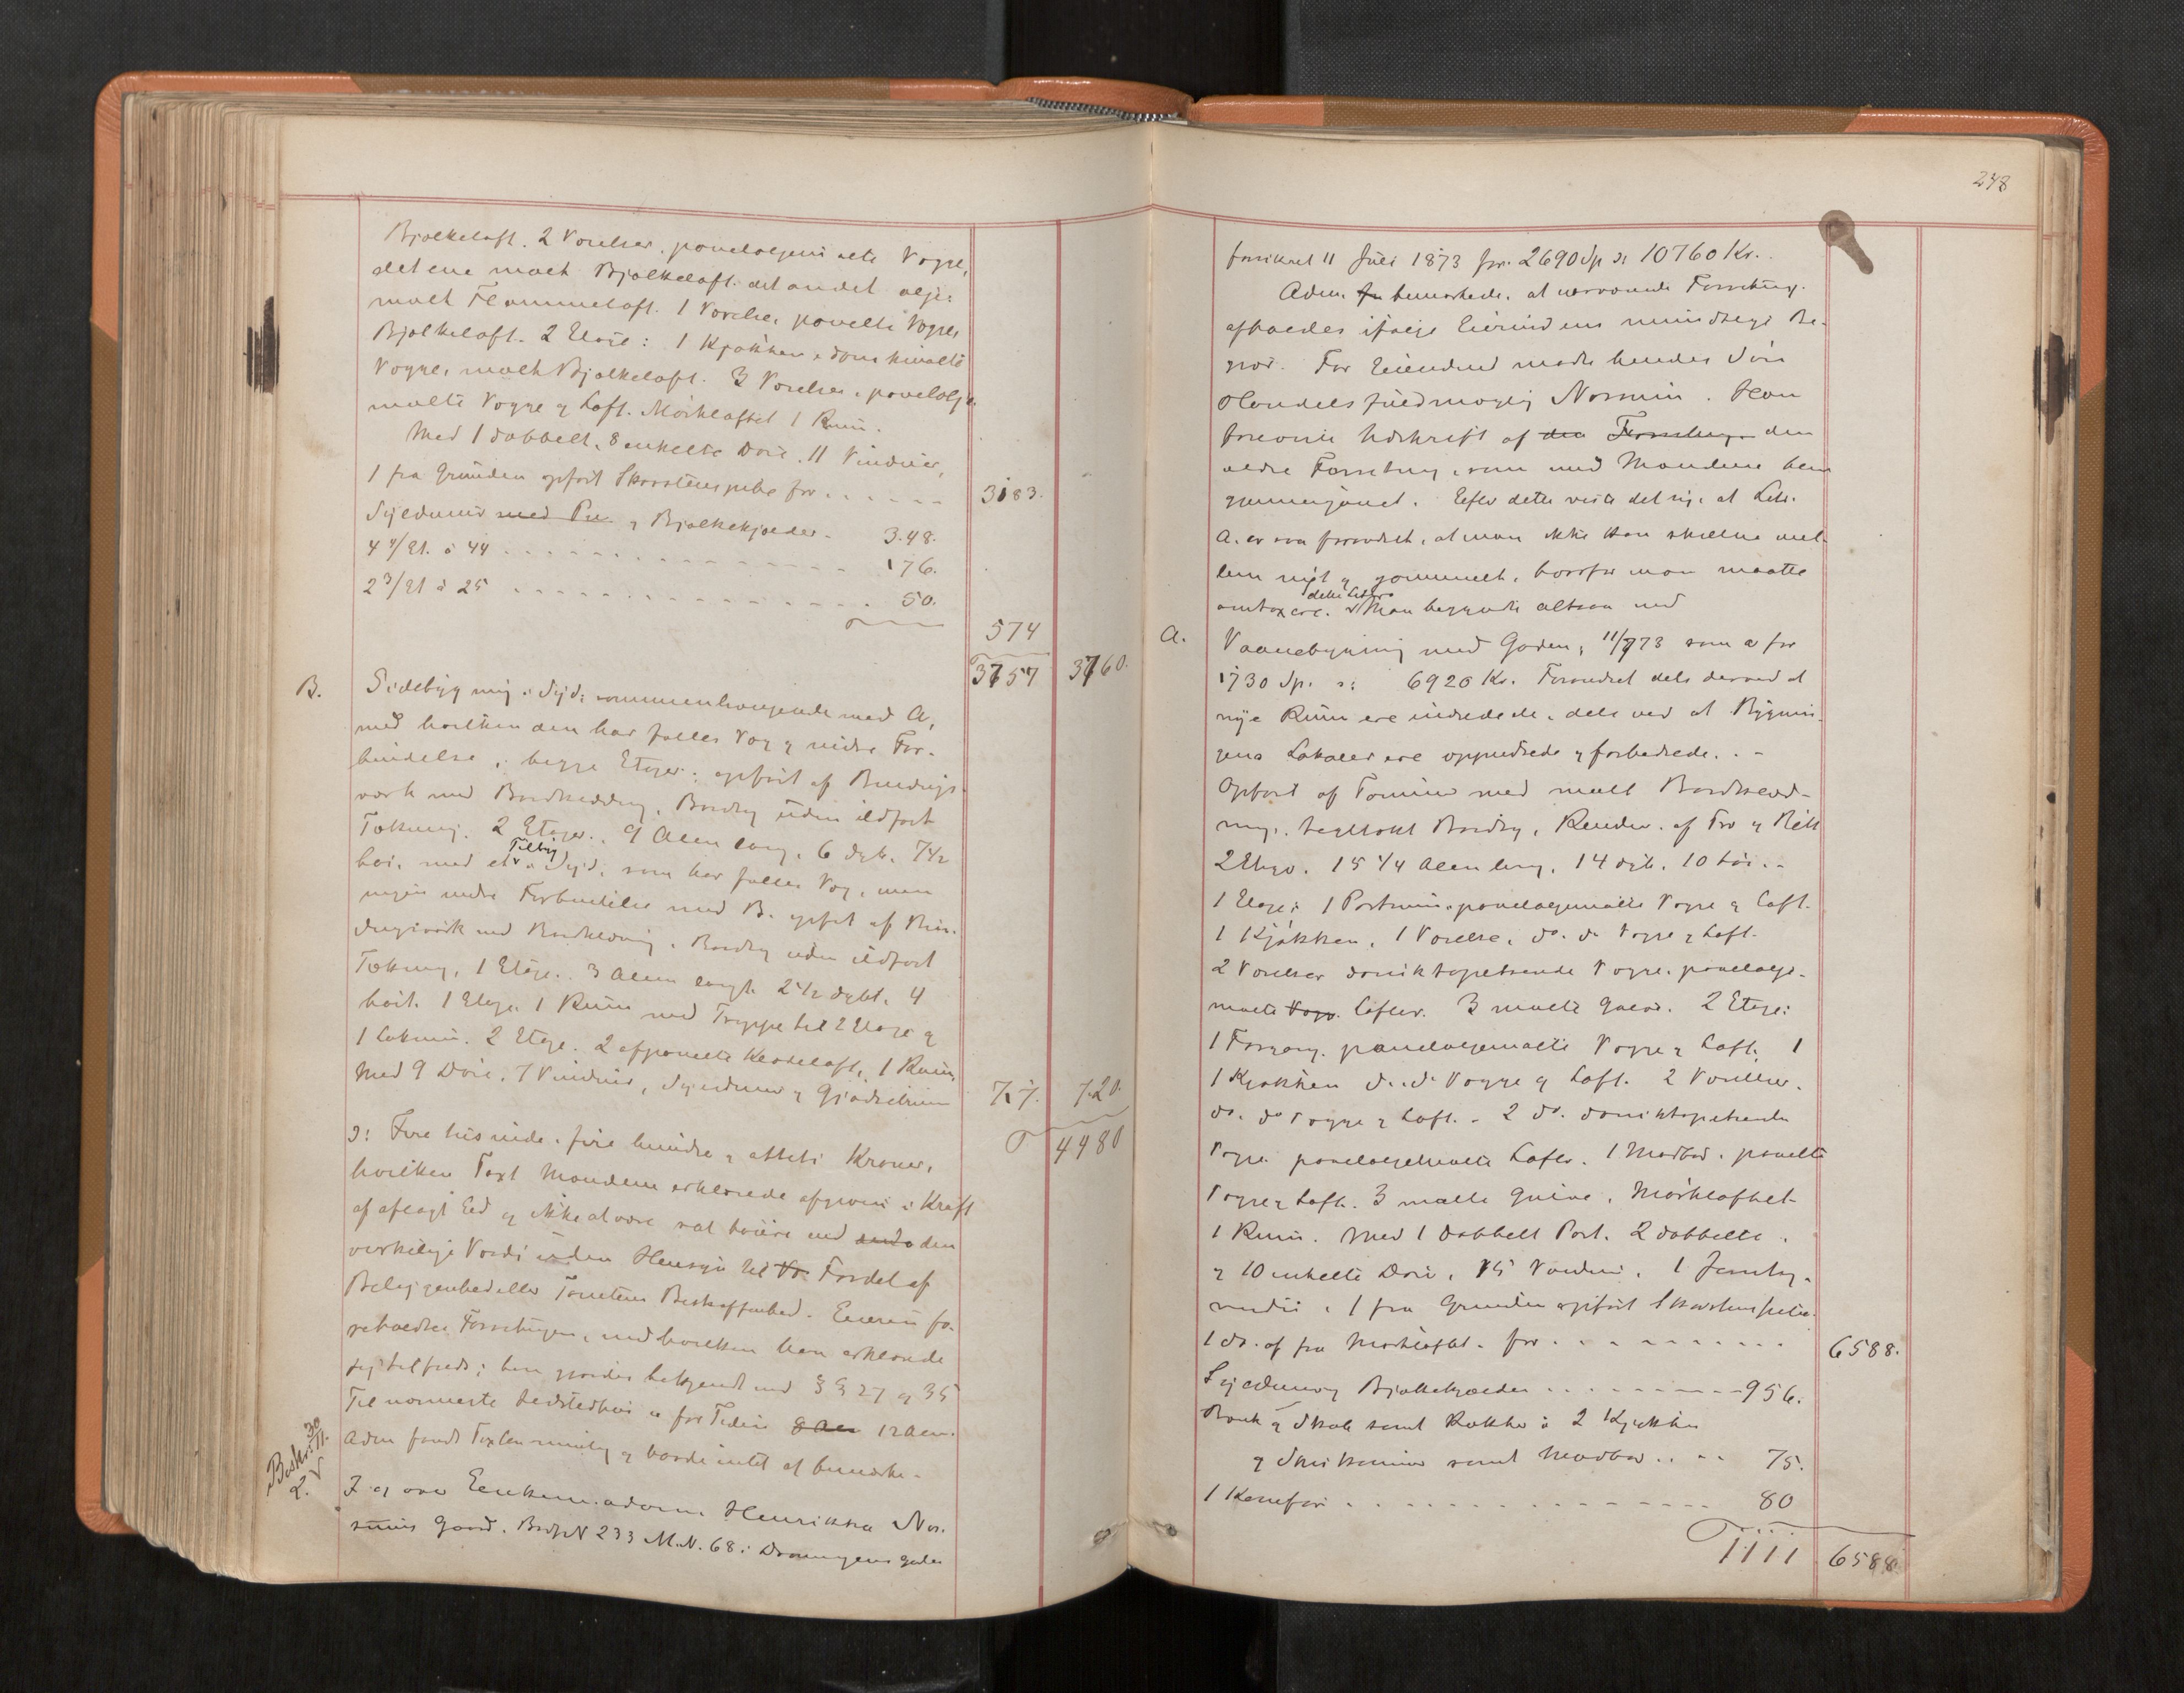 Bjælkeloft. 2 Værelser, panelolgem alte Vægge,
det ene malt Bjælkeloft, det andet olje-
malt Flammeloft. 1 Værelse, panelte Vægge,
Bjælkeloft. 2 Etage: 1 Kjøkken,
Vægge, malt Bjælkeloft. 3 Værelser, panelolje-
malte Vægge og Loft. Mörkloftet 1 Rum.
Med 1 dobbelt, 8 enkelte Döre, 11 Vinduer,
1 fra Grunden opfört Skorstenspibe for . . . . . . 3183.
Syldmur med Pu og Bjælkekjælder - 348.
4 /Et. à 44 - - - - - 176.
2 3/Et à 25 - - - - - 50.
574
3757 3760.
B. Sidebygning i Syd, sammenhængende med A,
med hvilken den har fælles Væg og indre For-
bindelse i begge Etager; opfört af Bindings-
værk med Bordklædning, Bordtag uden ildfast
Tækning. 2 Etager. 9 Alen lang, 6 dyb, 7½
höi, med et Tilbyg i Syd, som har fælles Væg, men
ingen indre Forbindelse med B. opfört af Bin-
dingsværk med Bordklædning, Bordtag uden ildfast
Tækning, 1 Etage. 3 Alen langt, 2½ dybt, 4
höit. 1 Etage. 1 Rum med Trappe til 2 Etage og
1 Lokum. 2 Etage. 2 afpanelte Klædeloft, 1 Rum,
Med 9 Döre, 7 Vinduer, Syldmur og Gjödselrum 717. 720.
ɔ: Fire tusinde, fire hundre og otteti Kroner, 4480
hvilken Taxt Mændene erklærede afgiven i Kraft
af aflagt Ed og ikke at være sat höiere end den
virkelige Værdi uden Hensyn til Fordel af
Beliggenhed eller Tomtens Beskaffenhed. Eieren fo-
reholdtes Forretningen, med hvilken han erklærede
sig tilfreds; han gjordes bekjendt med §§ 27 og 35
Til nærmeste Ildstedhus er fra Siden 12 Alen.
Adm fandt Taxten rimelig og havde intet at bemærke.
Beskr. 30/11.
2.
I og over Enkemadam Henrikka Nor-
Gaard, Brdp N 233 M. N. 68 i Dronningens gade
248
forsikret 11 Juli 1873 for 2690 Sp ɔ: 10760 Kr.
Adm. bemærkede, at nærværende Forretning
afholdes ifölge Eierindens mundtlige Be-
gjær. For Eierinden mödte hendes Sön
Handelsfuldmægtig Normin. Han
foreviste Udskrift af den Forretning den
ældre Forretning, som med Mændene blev
gjennemgaaet. Efter dette viste det sig, at Litr.
A. er saa forandret, at man ikke kan skille mel-
lem nyt og gammelt, hvorfor man maatte
omtaxere dette Litr. Man begyndte altsaa med
A. Vaanebygning mod Gaden, 11/7 73 som a for
1730 Sp. ɔ: 6920 Kr. Forandret dels derved at
nye Rum ere indredede, dels ved at Bygnin-
gens Lokaler ere oppudsede og forbedrede. -
Opfört af Tömmer med malt Bordklæd-
ning, tegltækt Bordtag, Render af Træ og Blik
2 Etager. 15 1/4 Alen lang, 14 dyb, 10 höi. -
1 Etage: 1 Portrum, paneloljemalte Vægge og Loft.
1 Kjökken, 1 Værelse, do. do Vægge og Loft.
2 Værelser Vægge, paneloljе-
malte Vægge Lofter. 3 malte Gulve. 2 Etage:
1 Forgang, paneloljemalte Vægge og Loft, 1
1 Kjøkken do. do Vægge og Loft. 2 Værelser,
do. do Vægge og Loft. - 2 do.
Vægge paneloljemalte Lofter. 1 Madbod, panelte
Vægge og Loft. 3 malte Gulve, Mörkloftet
1 Rum. Med 1 dobbelt Port, 2 dobbelte
og 10 enkelte Döre, 15 Vinduer, 1 Jerntag-
vindu, 1 fra Grunden opfört Skorstenspibe
1 do. op fra Mörkloftet for - - - - - 6588.
Syldmur og Bjælkekjælder - - - - - 956.
Bænk og Skab samt Række i 2 Kjøkken
og Spiskammer samt Madbod - - 75.
1 Komfur - - - - - 80
1111 6588